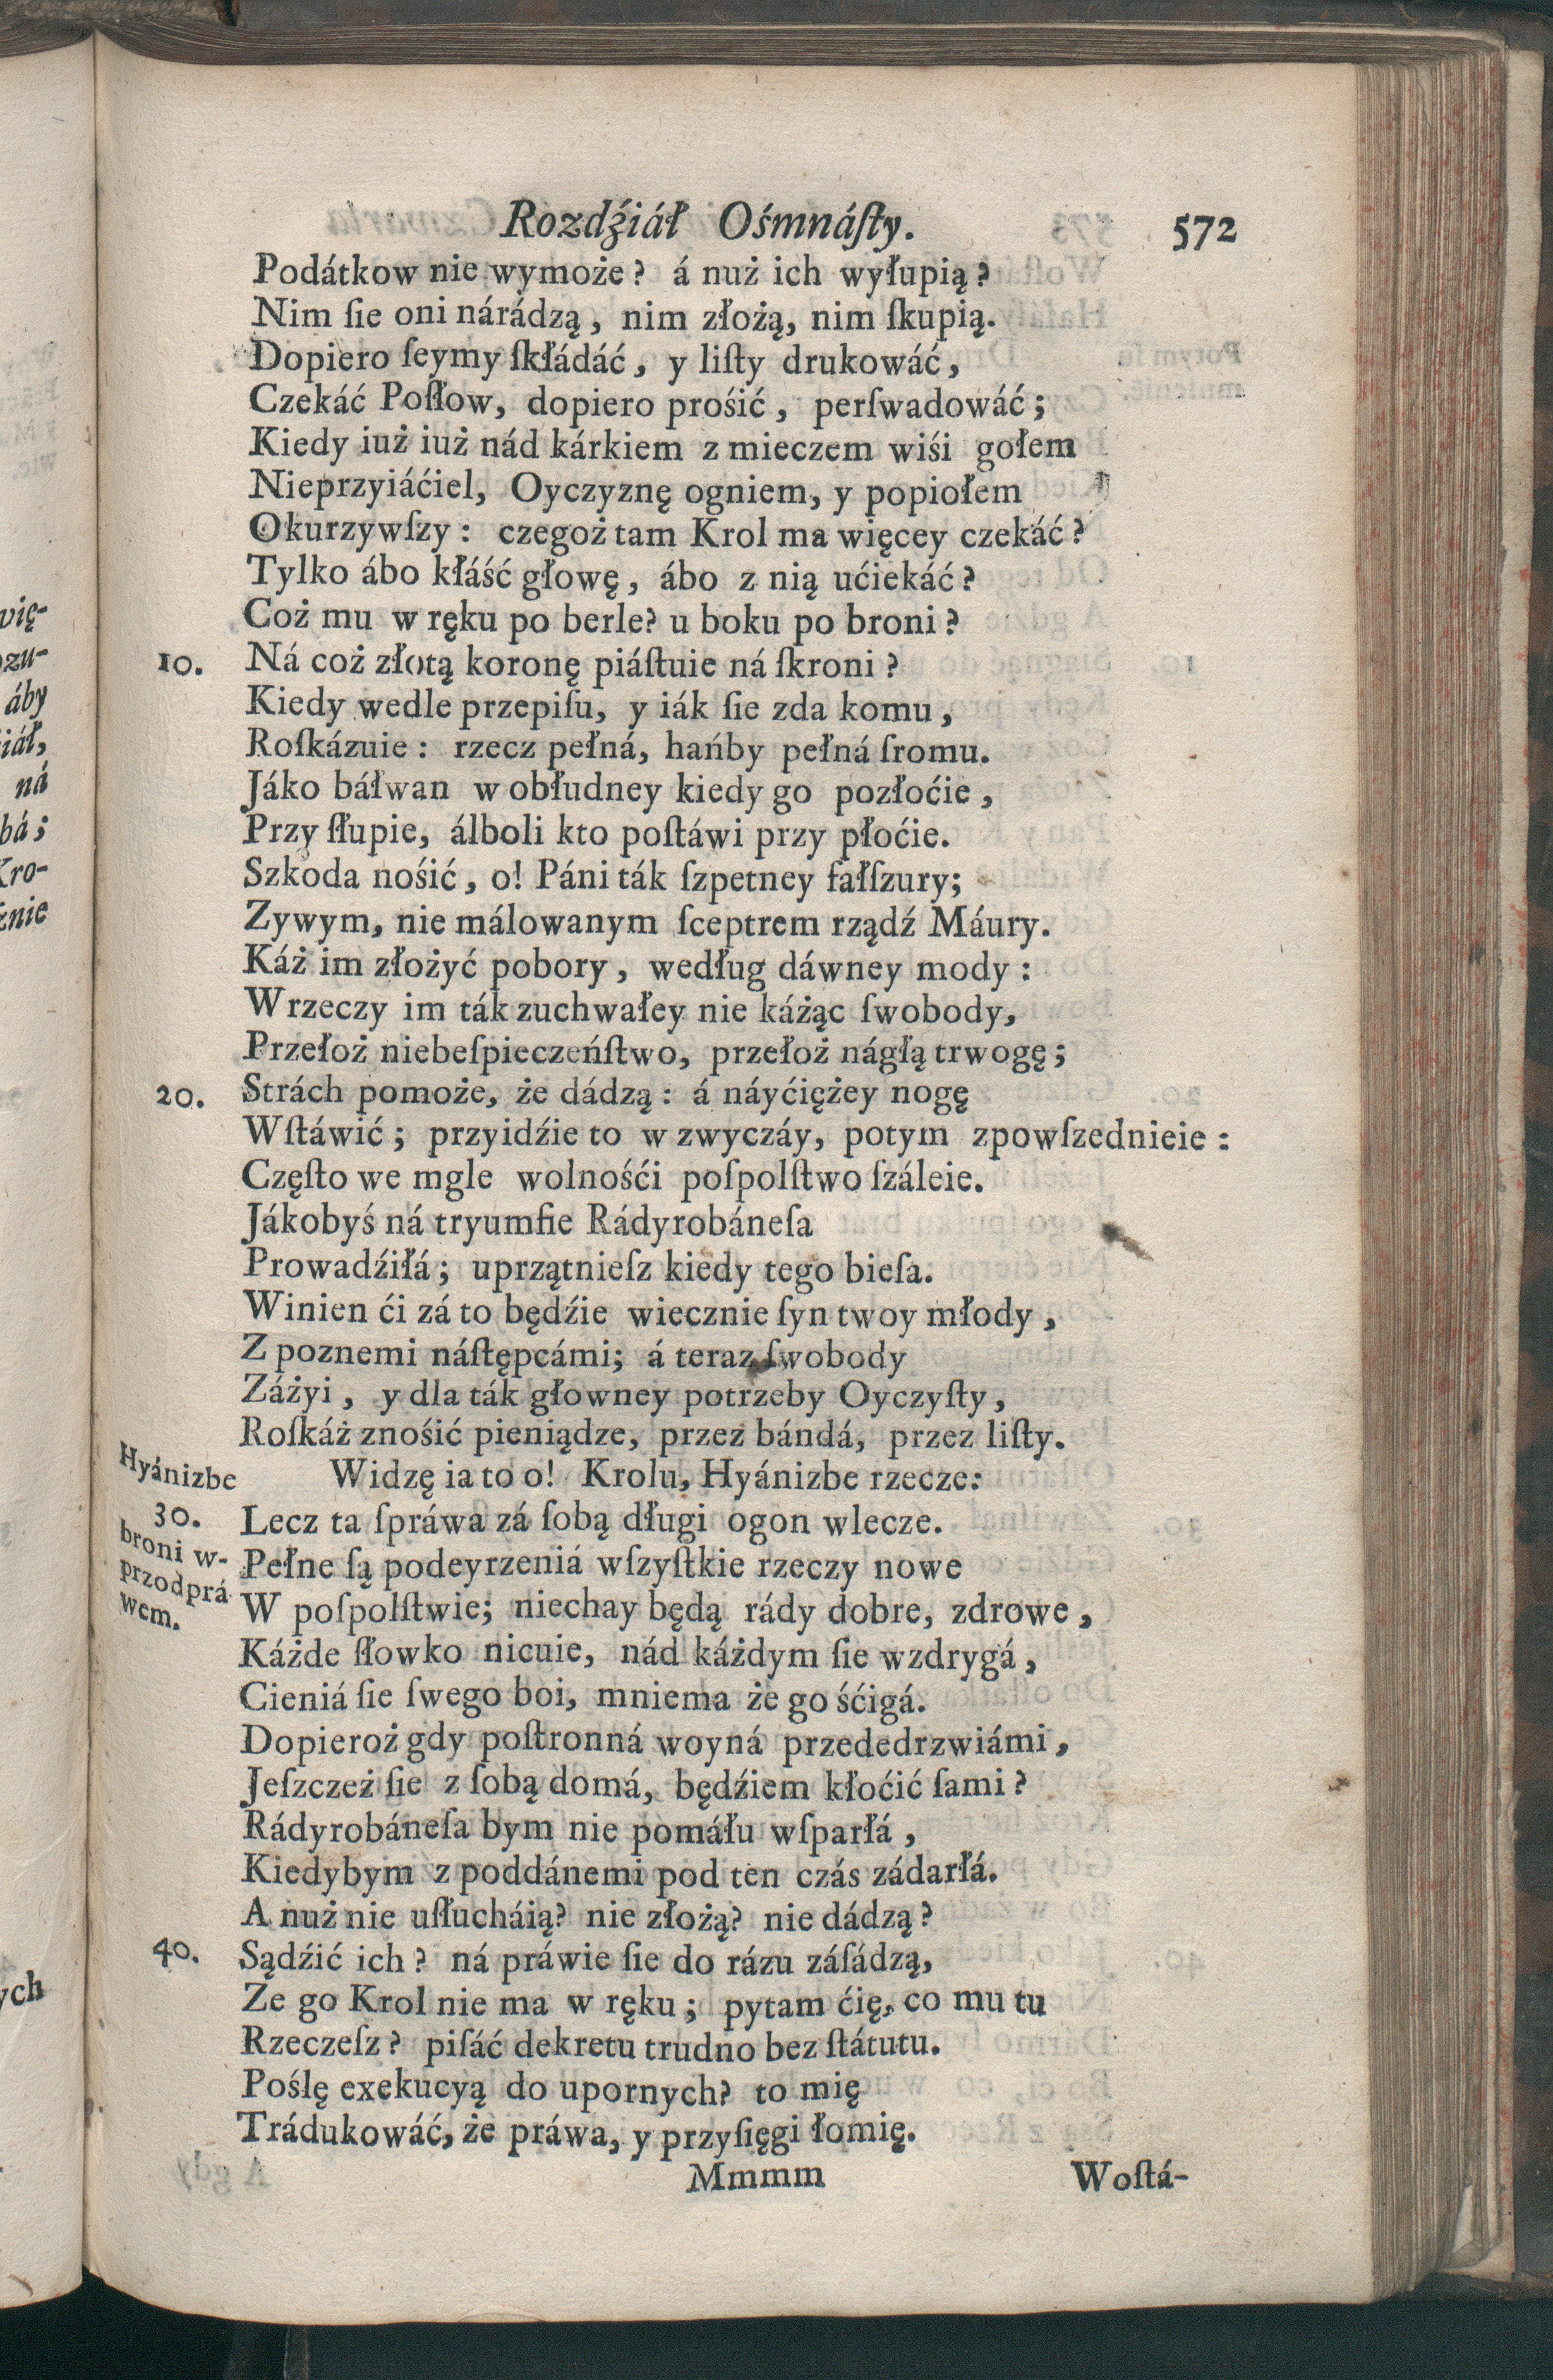 Rozdźiáł Ośmnáſty. 572
Podátkow nie wymoże? á nuż ich wyłupią?
Nim ſie oni nárádzą, nim złożą, nim ſkupią.
Dopiero ſeymy ſkłádáć, y liſty drukowáć,
Czekáć Poſłow, dopiero prośić, perſwadowáć;
Kiedy iuż iuż nád kárkiem z mieczem wiśi gołem
Nieprzyiáćiel, Oyczyznę ogniem, y popiołem
Okurzywſzy: czegoż tam Krol ma więcey czekáć?
Tylko ábo kłáść głowę, ábo z nią ućiekáć?
Coż mu w ręku po berle? u boku po broni?
10. Ná coż złotą koronę piáſtuie ná ſkroni?
Kiedy wedle przepiſu, y iák ſie zda komu,
Roſkázuie: rzecz pełná, hańby pełná ſromu.
Jáko báłwan w obłudney kiedy go pozłoćie,
Przy ſłupie, álboli kto poſtáwi przy płoćie.
Szkoda nośić, o! Páni ták ſzpetney fałſzury;
Zywym, nie málowanym ſceptrem rządź Máury.
Káż im złożyć pobory, według dáwney mody:
W rzeczy im ták zuchwałey nie káżąc ſwobody,
Przełoż niebeſpieczeńſtwo, przełoż nágłą trwogę;
20. Strách pomoże, że dádzą: á náyćiężey nogę
Wſtáwić; przyidźie to w zwyczáy, potym zpowſzednieie:
Częſto we mgle wolnośći poſpolſtwo ſzáleie.
Jákobyś ná tryumfie Rádyrobáneſa
Prowadźiłá; uprzątnieſz kiedy tego bieſa.
Winien ći zá to będźie wiecznie ſyn twoy młody,
Z poznemi náſtępcámi; á teraz ſwobody
Záżyi, y dla ták głowney potrzeby Oyczyſty,
Roſkáż znośić pieniądze, przez bándá, przez liſty.
Hyánizbe Widzę ia to o! Krolu, Hyánizbe rzecze:
30. Lecz ta ſpráwa zá ſobą długi ogon wlecze.
broni w- Pełne ſą podeyrzeniá wſzyſtkie rzeczy nowe
przodprá W poſpolſtwie; niechay będą rády dobre, zdrowe,
wem. Káżde ſłowko nicuie, nád káżdym ſie wzdrygá,
Cieniá ſie ſwego boi, mniema że go śćigá.
Dopieroż gdy poſtronná woyná przededrzwiámi,
Jeſzczeż ſie z ſobą domá, będźiem kłoćić ſami?
Rádyrobáneſa bym nie pomáłu wſparłá,
Kiedybym z poddánemi pod ten czás zádarłá.
A nuż nie uſłucháią? nie złożą? nie dádzą?
40. Sądźić ich? ná práwie ſie do rázu záſádzą,
Ze go Krol nie ma w ręku; pytam ćię, co mu tu
Rzeczeſz? piſáć dekretu trudno bez ſtátutu.
Poślę exekucyą do upornych? to mię
Trádukowáć, że práwa, y przyſięgi łomię.
Mmmm Woſtá-
vię-
ozu-
áby
iáł,
ná
bá;
Kro-
znie
ych